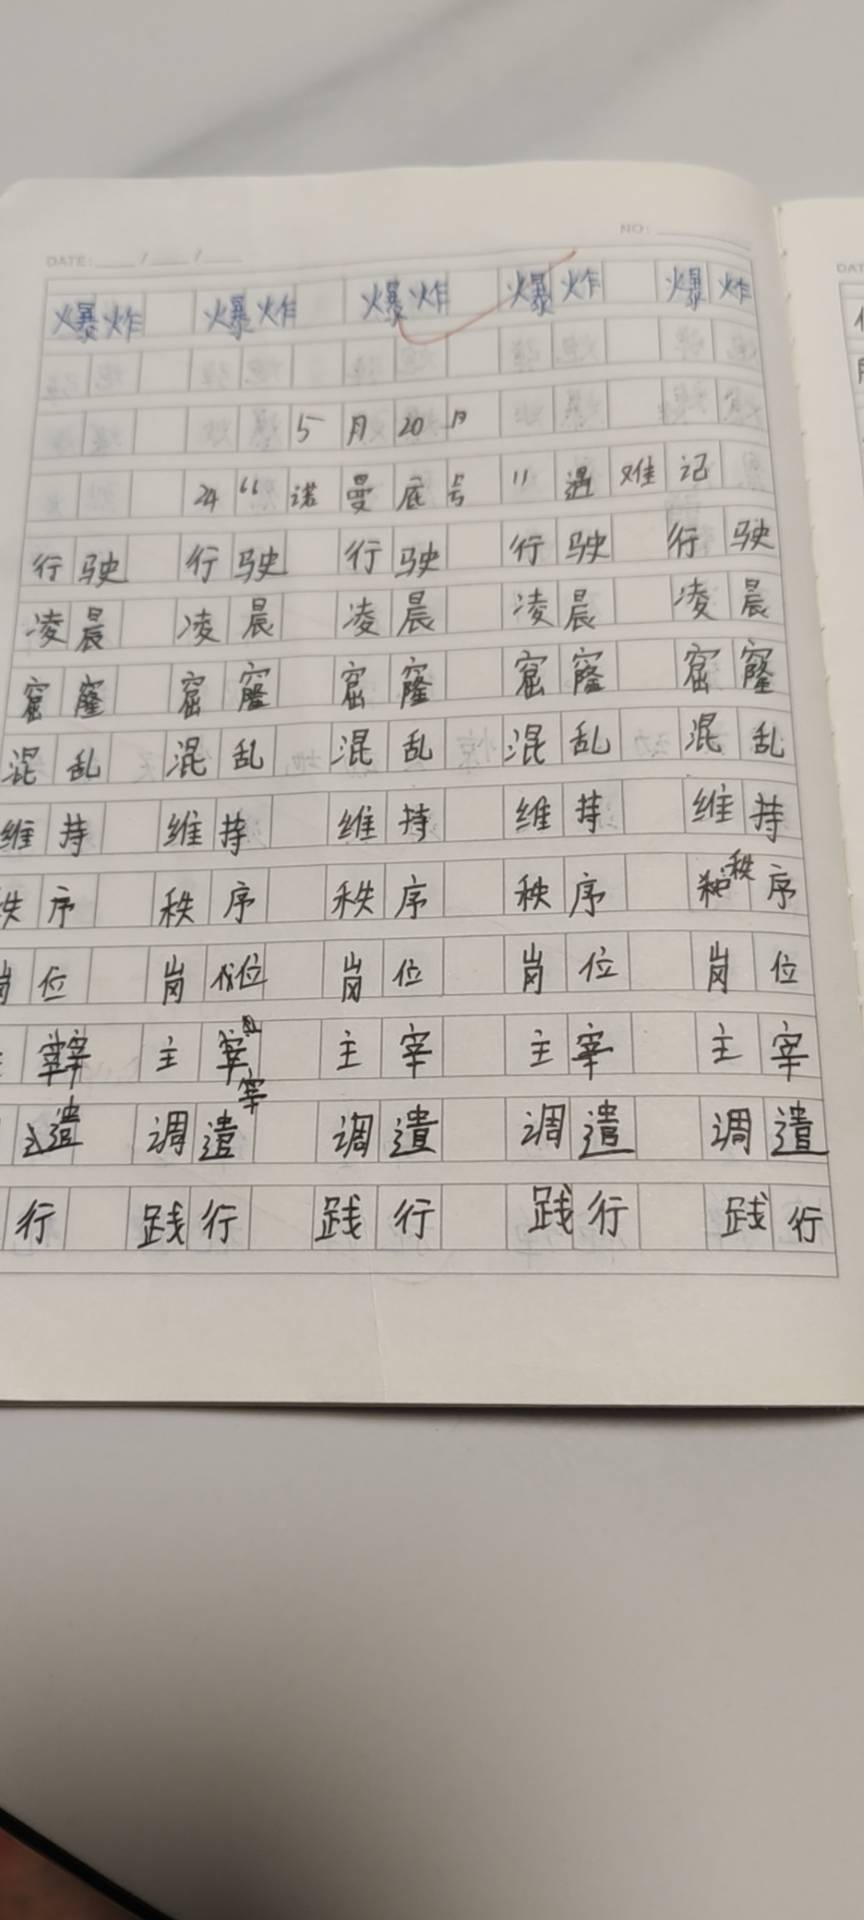 DATE: / /
NO:
爆炸 爆炸 爆炸 爆炸 爆炸
5月20日
24“诺曼底号”遇难记
行驶 行驶 行驶 行驶 行驶
凌晨 凌晨 凌晨 凌晨 凌晨
窟窿 窟窿 窟窿 窟窿 窟窿
混乱 混乱 混乱 混乱 混乱
维持 维持 维持 维持 维持
秩序 秩序 秩序 秩序 秩序
岗位 岗位 岗位 岗位 岗位
宰 主宰 主宰 主宰 主宰
遣 调遣 调遣 调遣 调遣
行 践行 践行 践行 践行